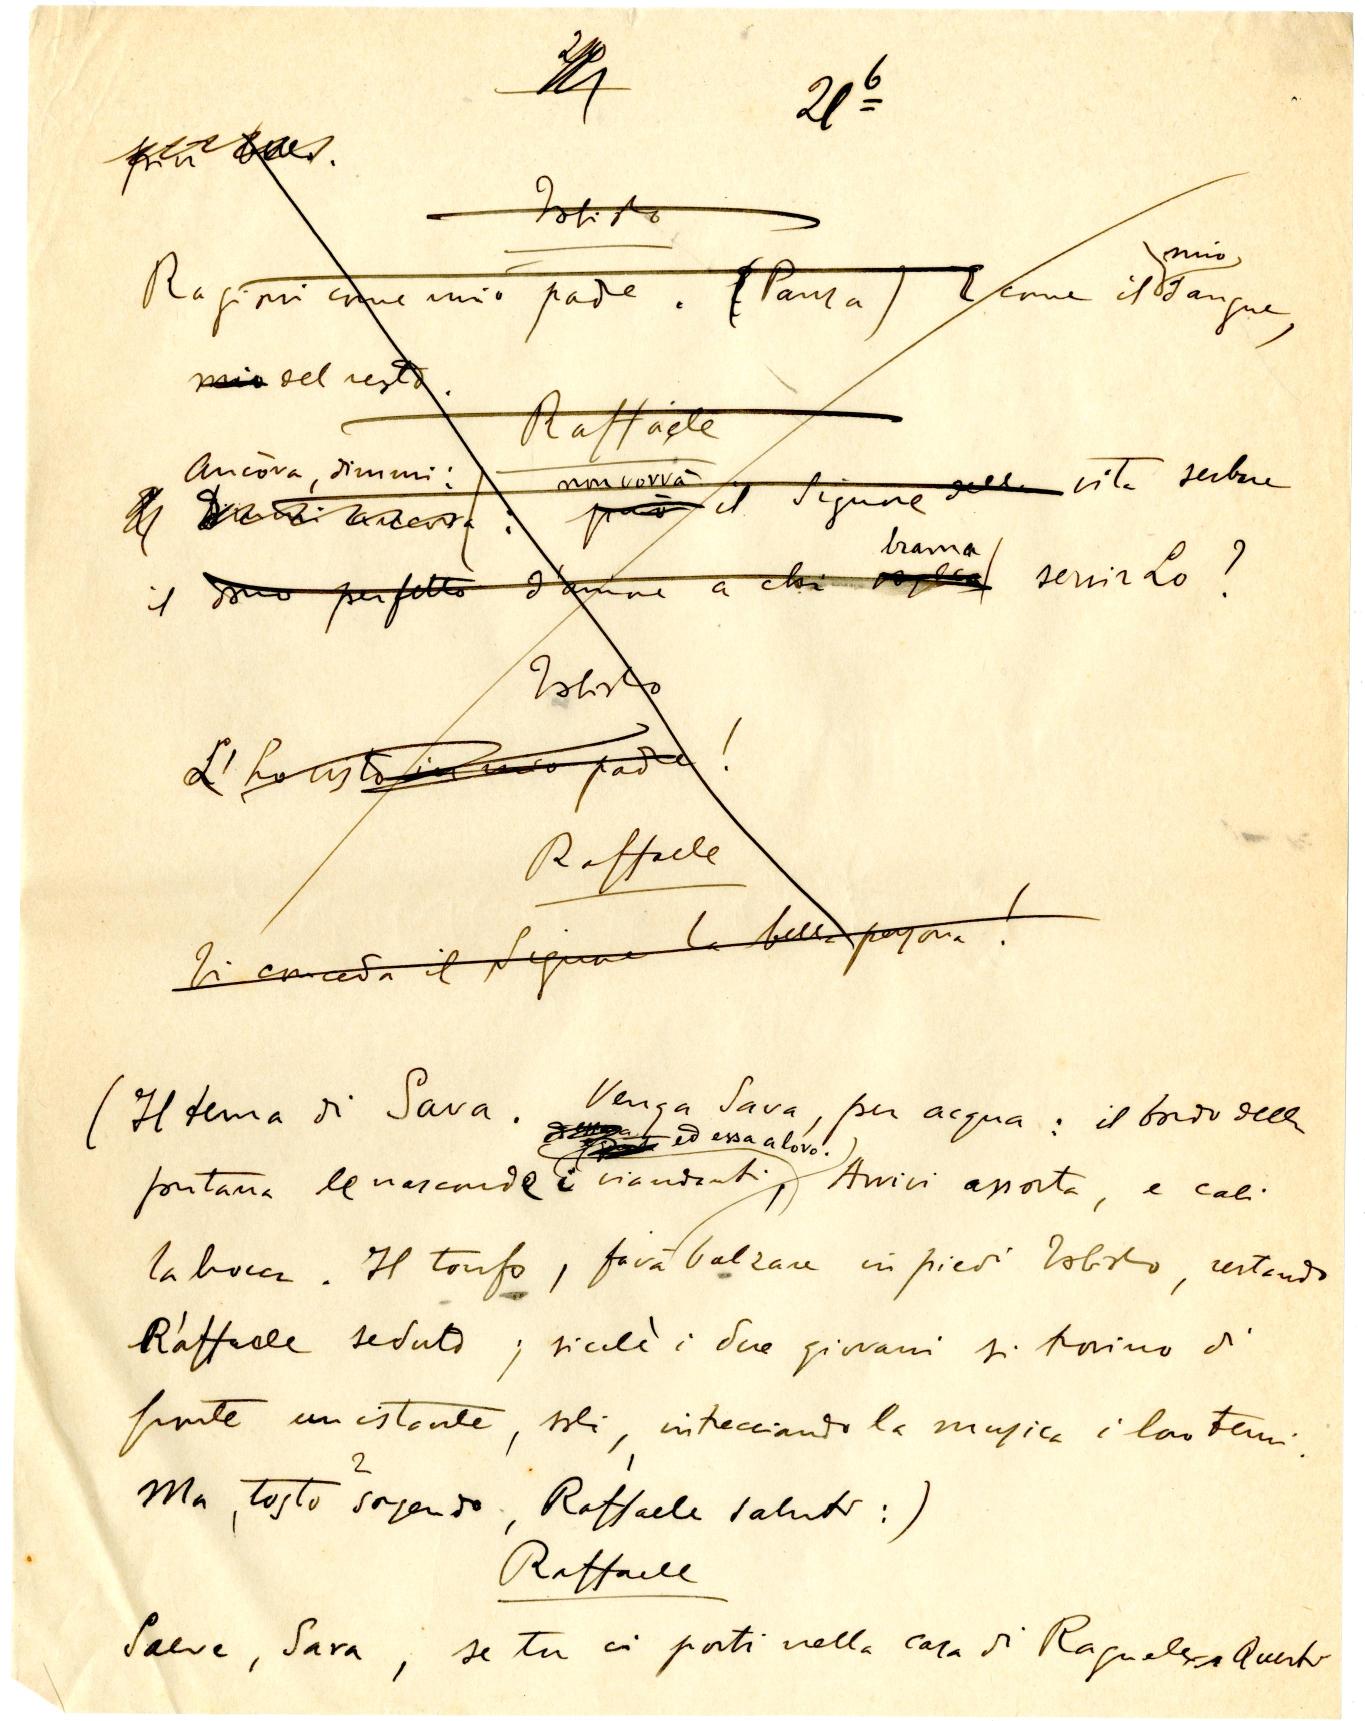 21 b
più
Tobiolo
Ragioni come mio padre. (Pausa) E come il mio sangue,
mio del resto.
Raffaele
Ancòra, dimmi:
non vorrà
può il Signore della vita serbare
brama
il dono perfetto d'amore a chi voglia servirLo?
Tobiolo
L'ho visto in mio padre!
Raffaele
Ti conceda il Signore la bella persona!
(Il tema di Sara. Venga Sara, per acqua: il bordo della
ed essa a loro.
fontana le nasconde i viandanti, Arrivi assorta, e cali
la brocca. Il tonfo, farà balzare in piedi Tobiolo, restando
Raffaele seduto; sicchè i due giovani si trovino di
fronte un istante, soli, intrecciando la musica i loro temi.
Ma, tosto sorgendo, Raffaele saluti:)
Raffaele
Salve, Sara, se tu ci porti nella casa di Raguele. Questi